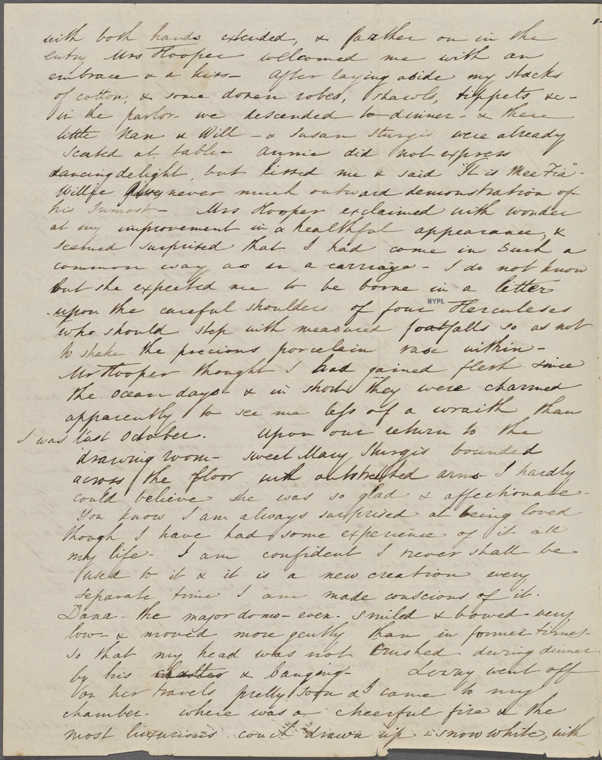 with both hands extended, & farther on in the
entry Mrs Hooper welcomed me with an
embrace & a kiss— After laying aside my stocks
of cotton, & some dozen robes, shawls, tippets &c—
in the parlor we descended to dinner— & there
little Nan & Will— & Susan Sturgis were already
seated at table— Annie did not express
dancing delight, but kissed me & said "It is Mee Fia"—
Willie gives never much outward demonstration of
his inmost— Mrs Hooper exclaimed with wonder
at my improvement in a healthful appearance, &
seemed surprised that I had come in such a
common way as in a carriage— I do not know
but she expected me to be borne in a litter
NYPL
upon the careful shoulders of four Herculeses
who should step with measured footfalls so as not
to shake the precious porcelain vase within—
Mr Hooper thought I had gained flesh since
the ocean days— & in short they were charmed
apparently to see me less of a wraith than
I was last October. Upon our return to the
drawing room— sweet Mary Sturgis bounded
across the floor with outstretched arms I hardly
could believe she was so glad & affectionate—
You know I am always surprised at being loved
though I have had some experience of it all
my life— I am confident I never shall be
used to it & it is a new creation every
separate time I am made conscious of it.
Dana— the major domo— even smiled & bowed very
low— & moved more gently than in former times—
so that my head was not crushed during dinner
by his & banging— went off
on her travels pretty soon & I came to my
chamber— where was a cheerful fire & the
most luxurious couch drawn up snow white, with